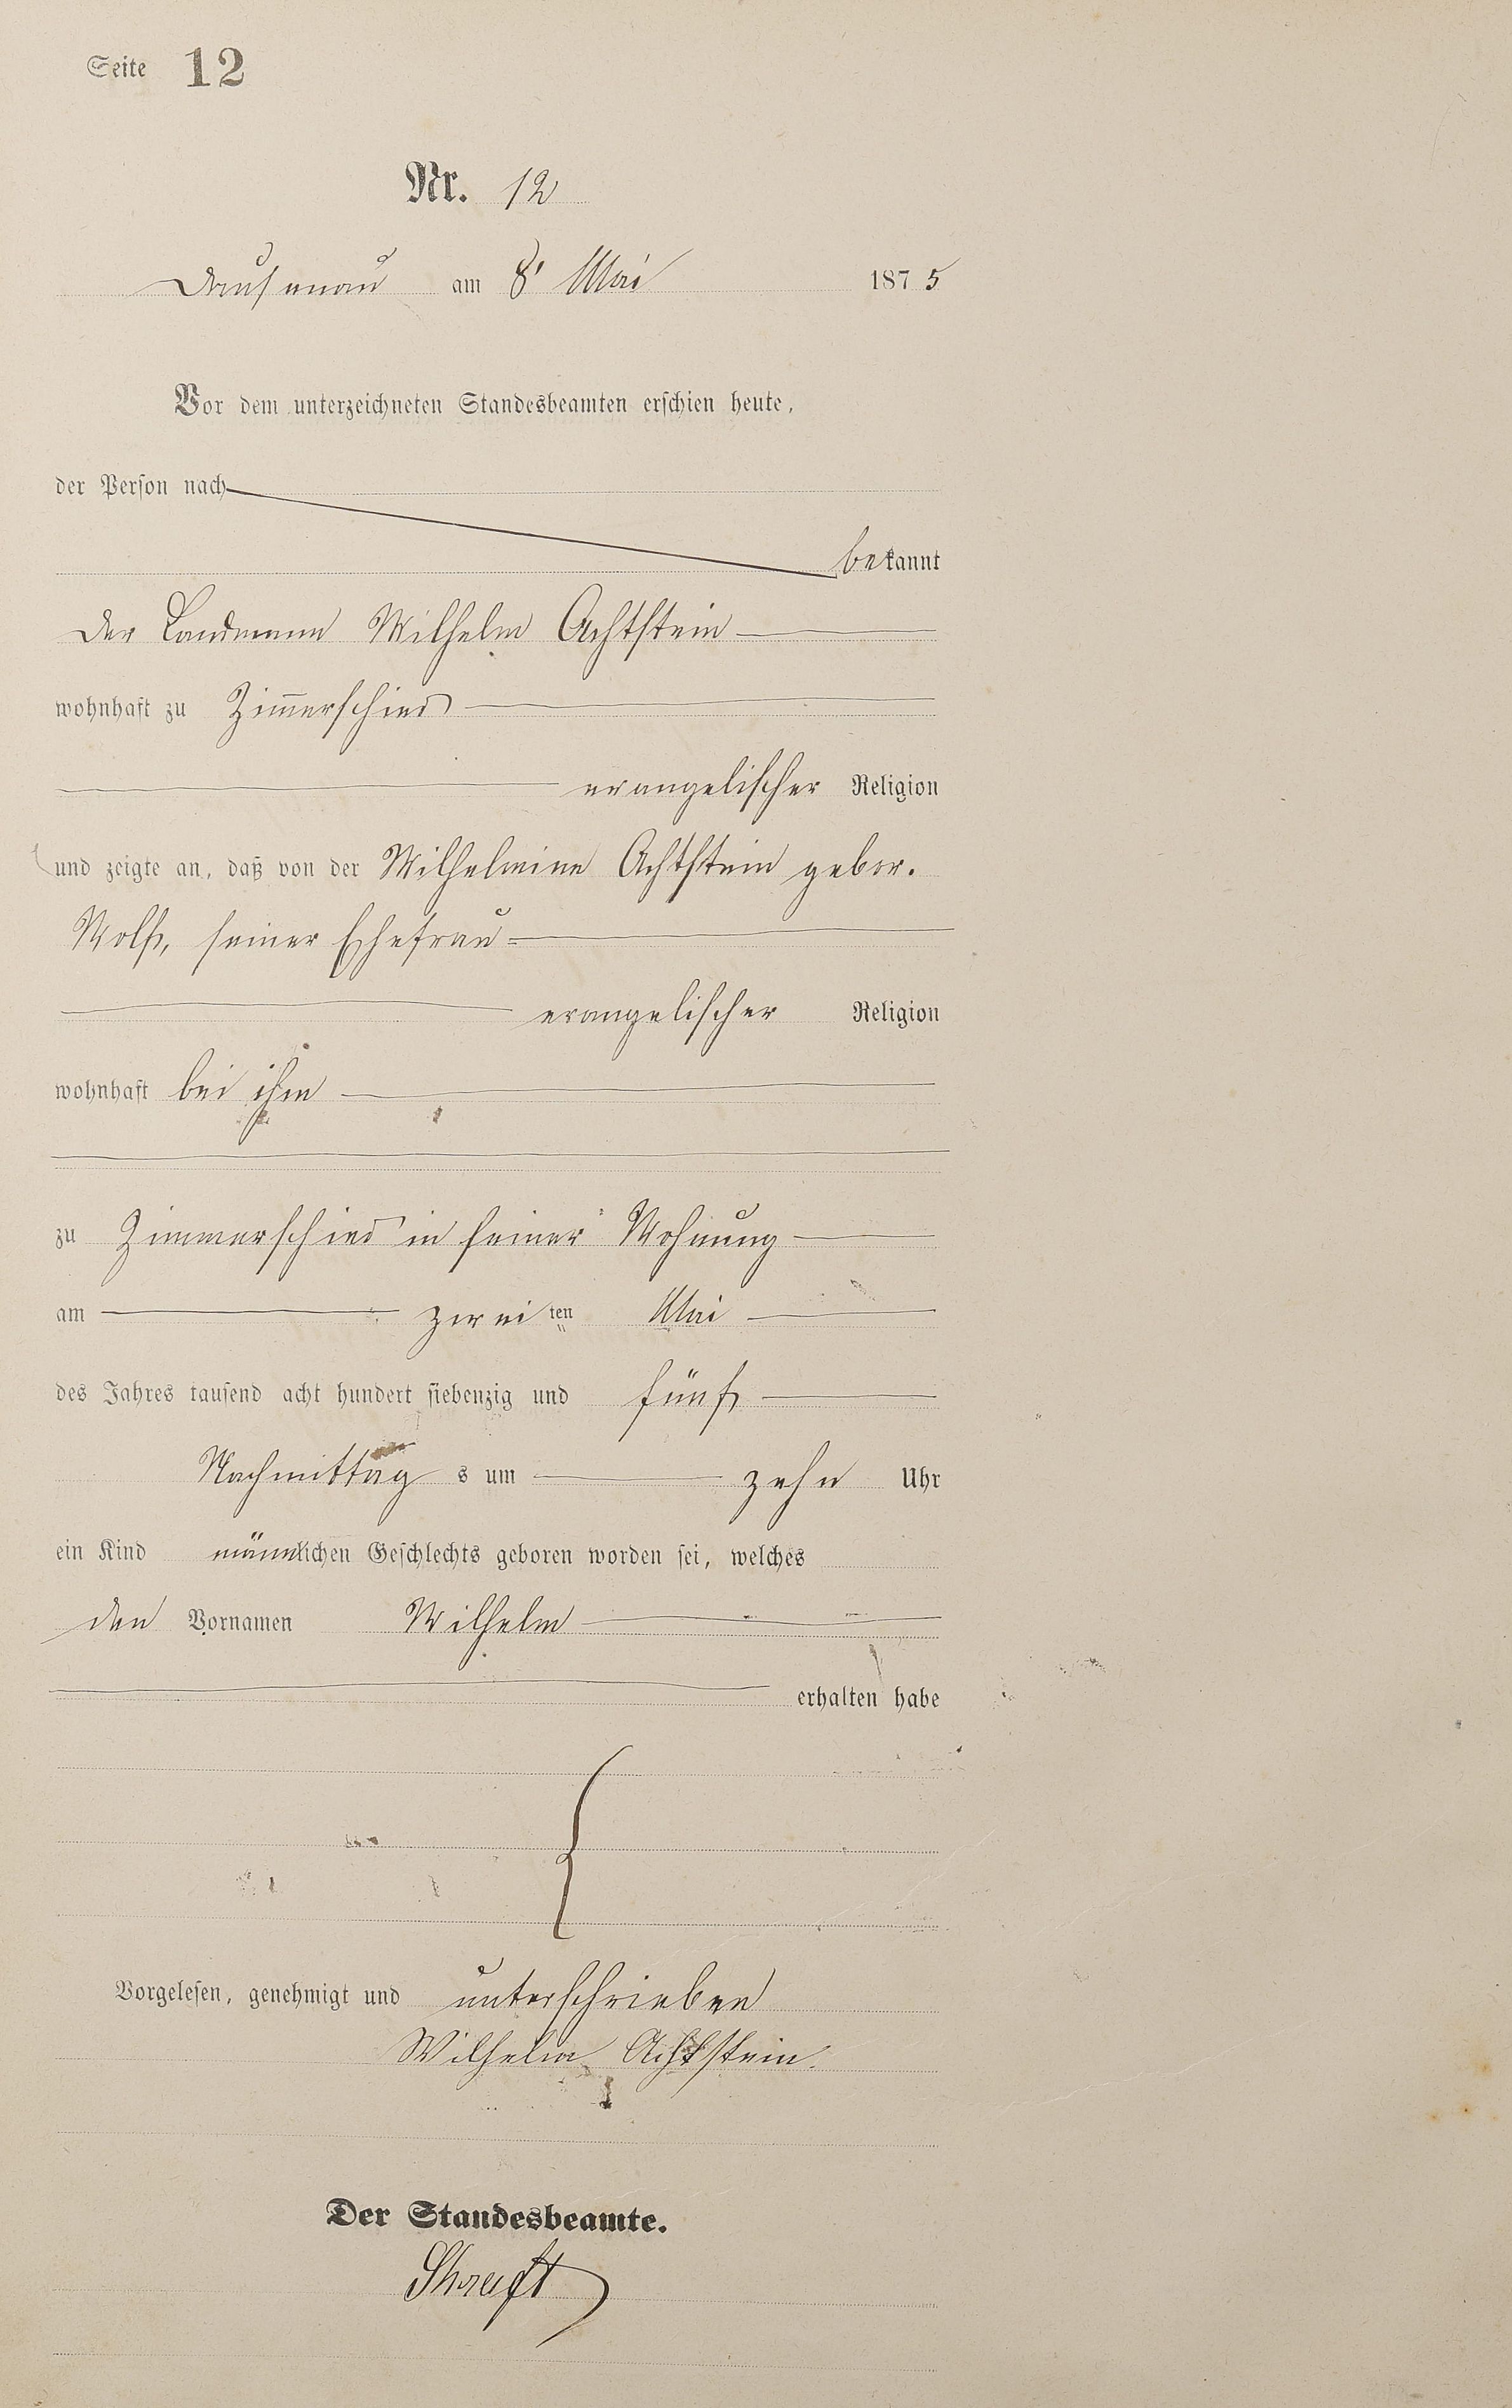 Seite 12
Nr. 12
Dausenau am 8' Mai 1875
Vor dem unterzeichneten Standesbeamten erschien heute,
der Person nach
bekannt
der Landmann Wilhelm Achtstein
wohnhaft zu Zim̅erschied
evangelischer Religion
und zeigte an, daß von der Wilhelmine Achtstein gebor.
Wolf, seiner Ehefrau
evangelischer Religion
wohnhaft bei ihm
zu Zimmerschied in seiner Wohnung
am zweiten Mai
des Jahres tausend acht hundert siebenzig und fünf
Nachmittags um zehn Uhr
ein Kind männlichen Geschlechts geboren worden sei, welches
den Vornamen Wilhelm
erhalten habe
Vorgelesen, genehmigt und unterschrieben
Wilhelm Achtstein.
Der Standesbeamte.